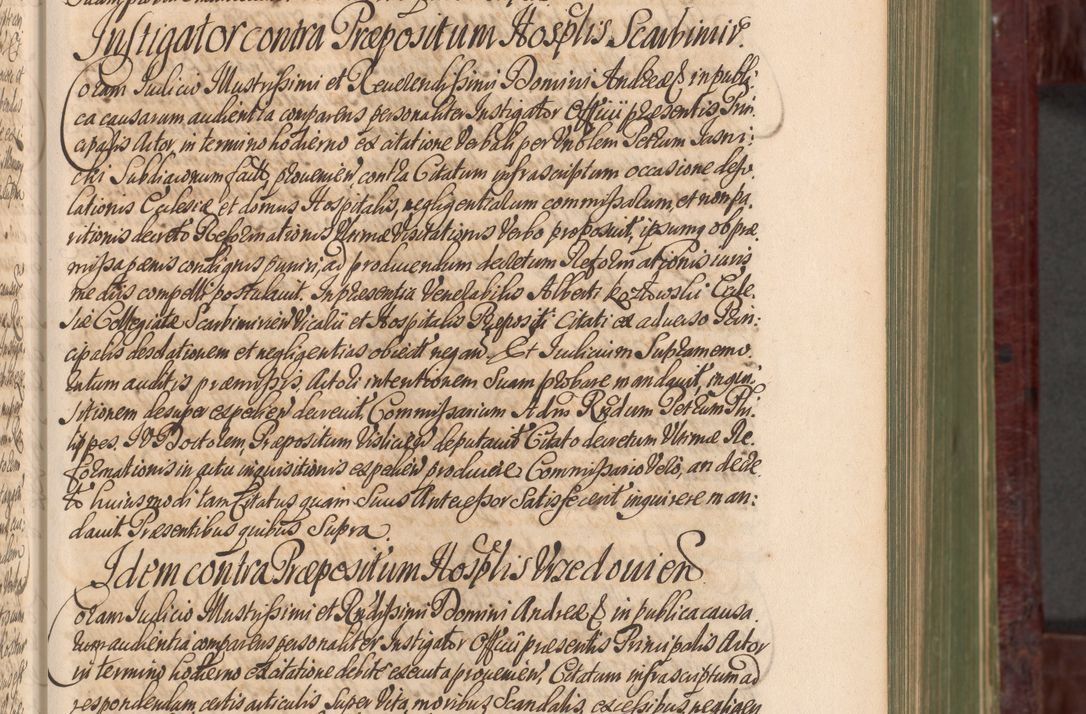 Instigator contra Præpositum Hosplis Scarbimir.
Coram Iudicio Illustrissimi et Reuerendissimi Domini Andreæ & in publi:
ca causarum audientia comparens personaliter Instigator Officii præsentis Prin:
cipalis Actor, in termino hodierno ex citatione Verbali per Vnblem Petrum Iasni:
cki Subdiaconum facta prouenien, contra Citatum infrascriptum occasione deso,
lationis Ecclesiæ et domus Hospitalis, negligentiarum commissarum, et non pa,
ritionis decreto Reformationis Vltimæ Visitationis Verbo proposuit, ipsumq ob præ,
missa pænis condignis puniri, ad producendum decretum Reformationis iuris
me diis compelli postulauit. In præsentia Venerabilis Alberti Kozłowski Eccle,
siæ Collegiatæ Scarbimirien Vicarii et Hospitalis Præpositi Citati ex aduerso Prin:
cipalis desolationem et negligentias obiect negan. Et Iudicium Supramemo,
ratum auditis præmissis, Actori intentionem Suam probare mandauit, inqui,
sitionem desuper expedien decreuit, Commissarium Adm Rndum Petrum Phi,
lippes. I V Doctorem, Præpositum Vislicien deputauit Citato decretum Vltimæ Re,
formationis in actu inquisitionis expedien producere Commissario Vero, an decre,
to huiusmodi tam Citatus quam Suus Antecessor Satisfecerit inquirere man:
dauit Præsentibus quibus Supra.
Idem contra Præpositum Hosplis Vrzedouien
Coram Iudicio Illustrissimi et Rndissimi Domini Andreæ & in publica causa,
rum audientia comparens personaliter Instigator Officii præsentis Principalis Actor
in termino hodierno ex citatione debite executa prouenien, Citatum infrascriptum ad
respondendum certis articulis Super Vita, moribus Scandalis, excessibus negligen